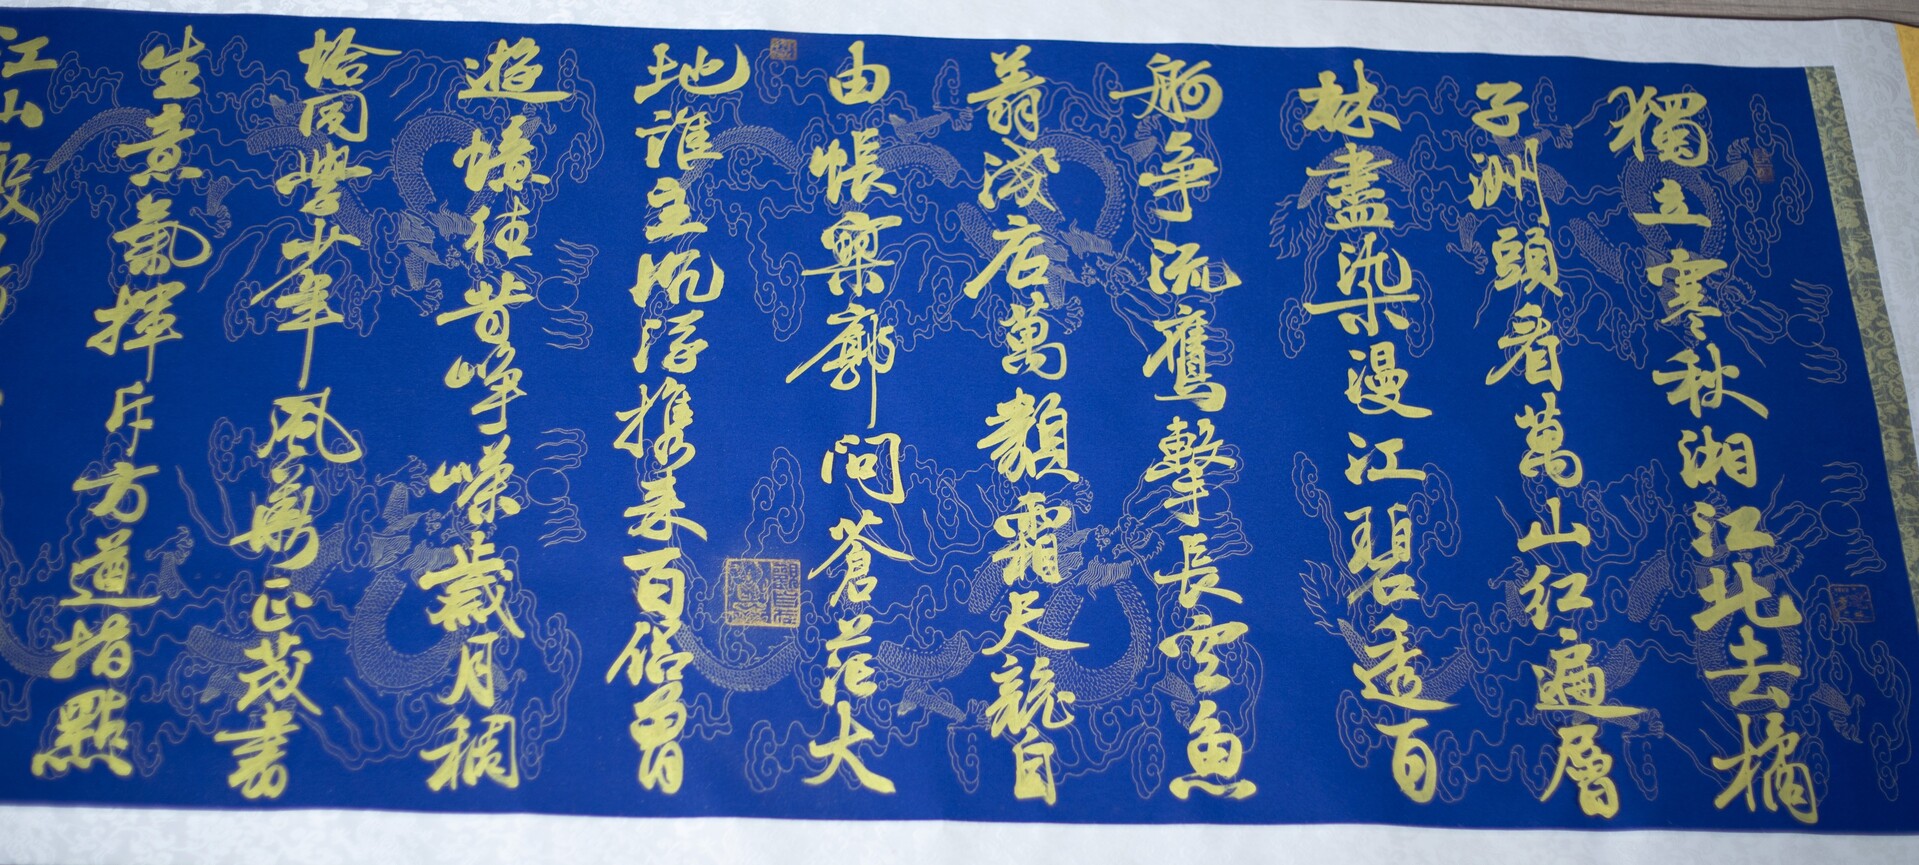 獨立寒秋湘江北去橘
子洲頭看萬山紅遍層
林盡染漫江碧透百
舸爭流鷹擊長空魚
翔淺底萬類霜天競自
由悵寥廓問蒼茫大
地誰主沉浮攜來百侶曾
遊憶往昔崢嶸歲月稠
恰同學少年風華正茂書
生意氣揮斥方遒指點
江山